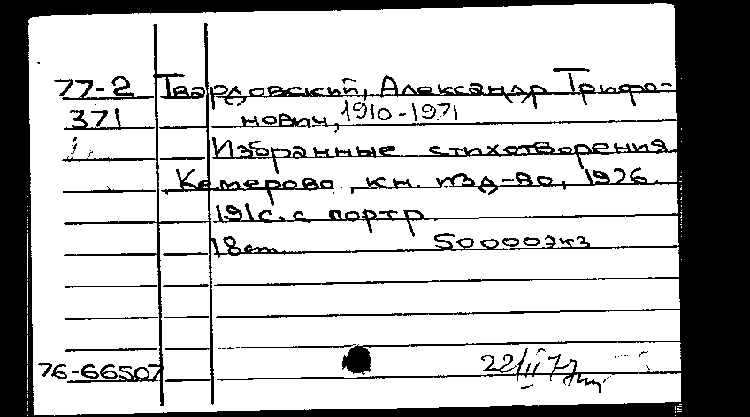 77-2 Твардовский, Александр Трифо-
371 нович, 1910-1971
Избранные стихотворения.
Кемерово, кн. изд-во, 1976.
191с. с портр.
18см. 50000экз
76-66507 22/II 77